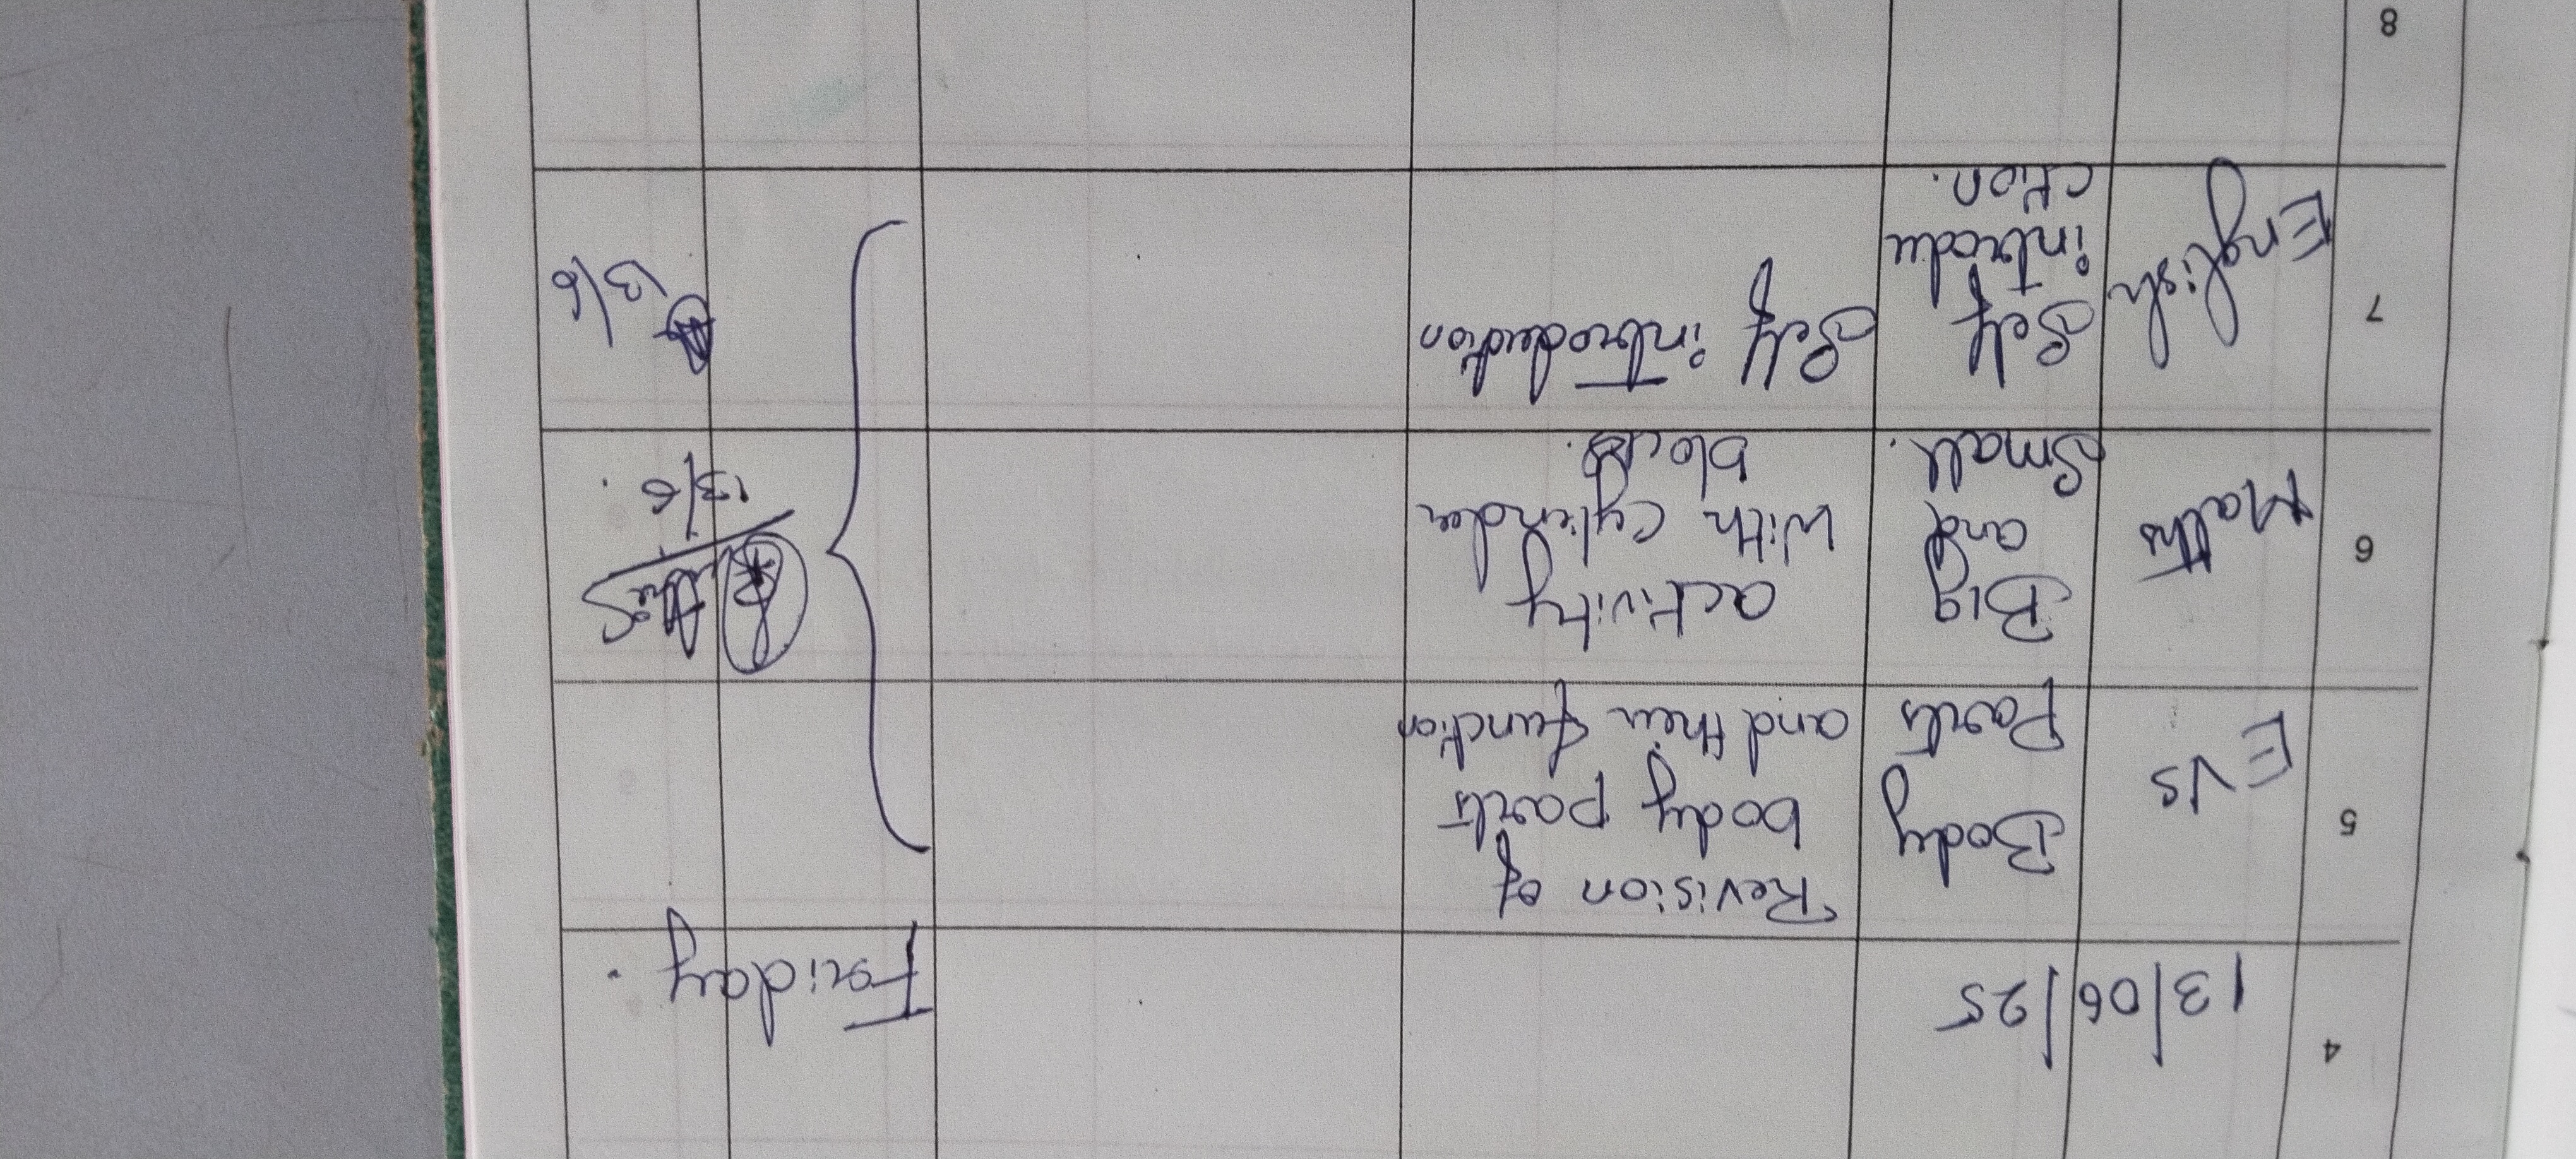 4
13/06/25
Friday.
5
EVS
Body
Parts
Revision of
body parts
and their function
6
Maths
Big
and
Small.
activity
with Cylinder
blocks.
13/6.
7
English
Self
introdu
ction.
Self introduction
13/6
8